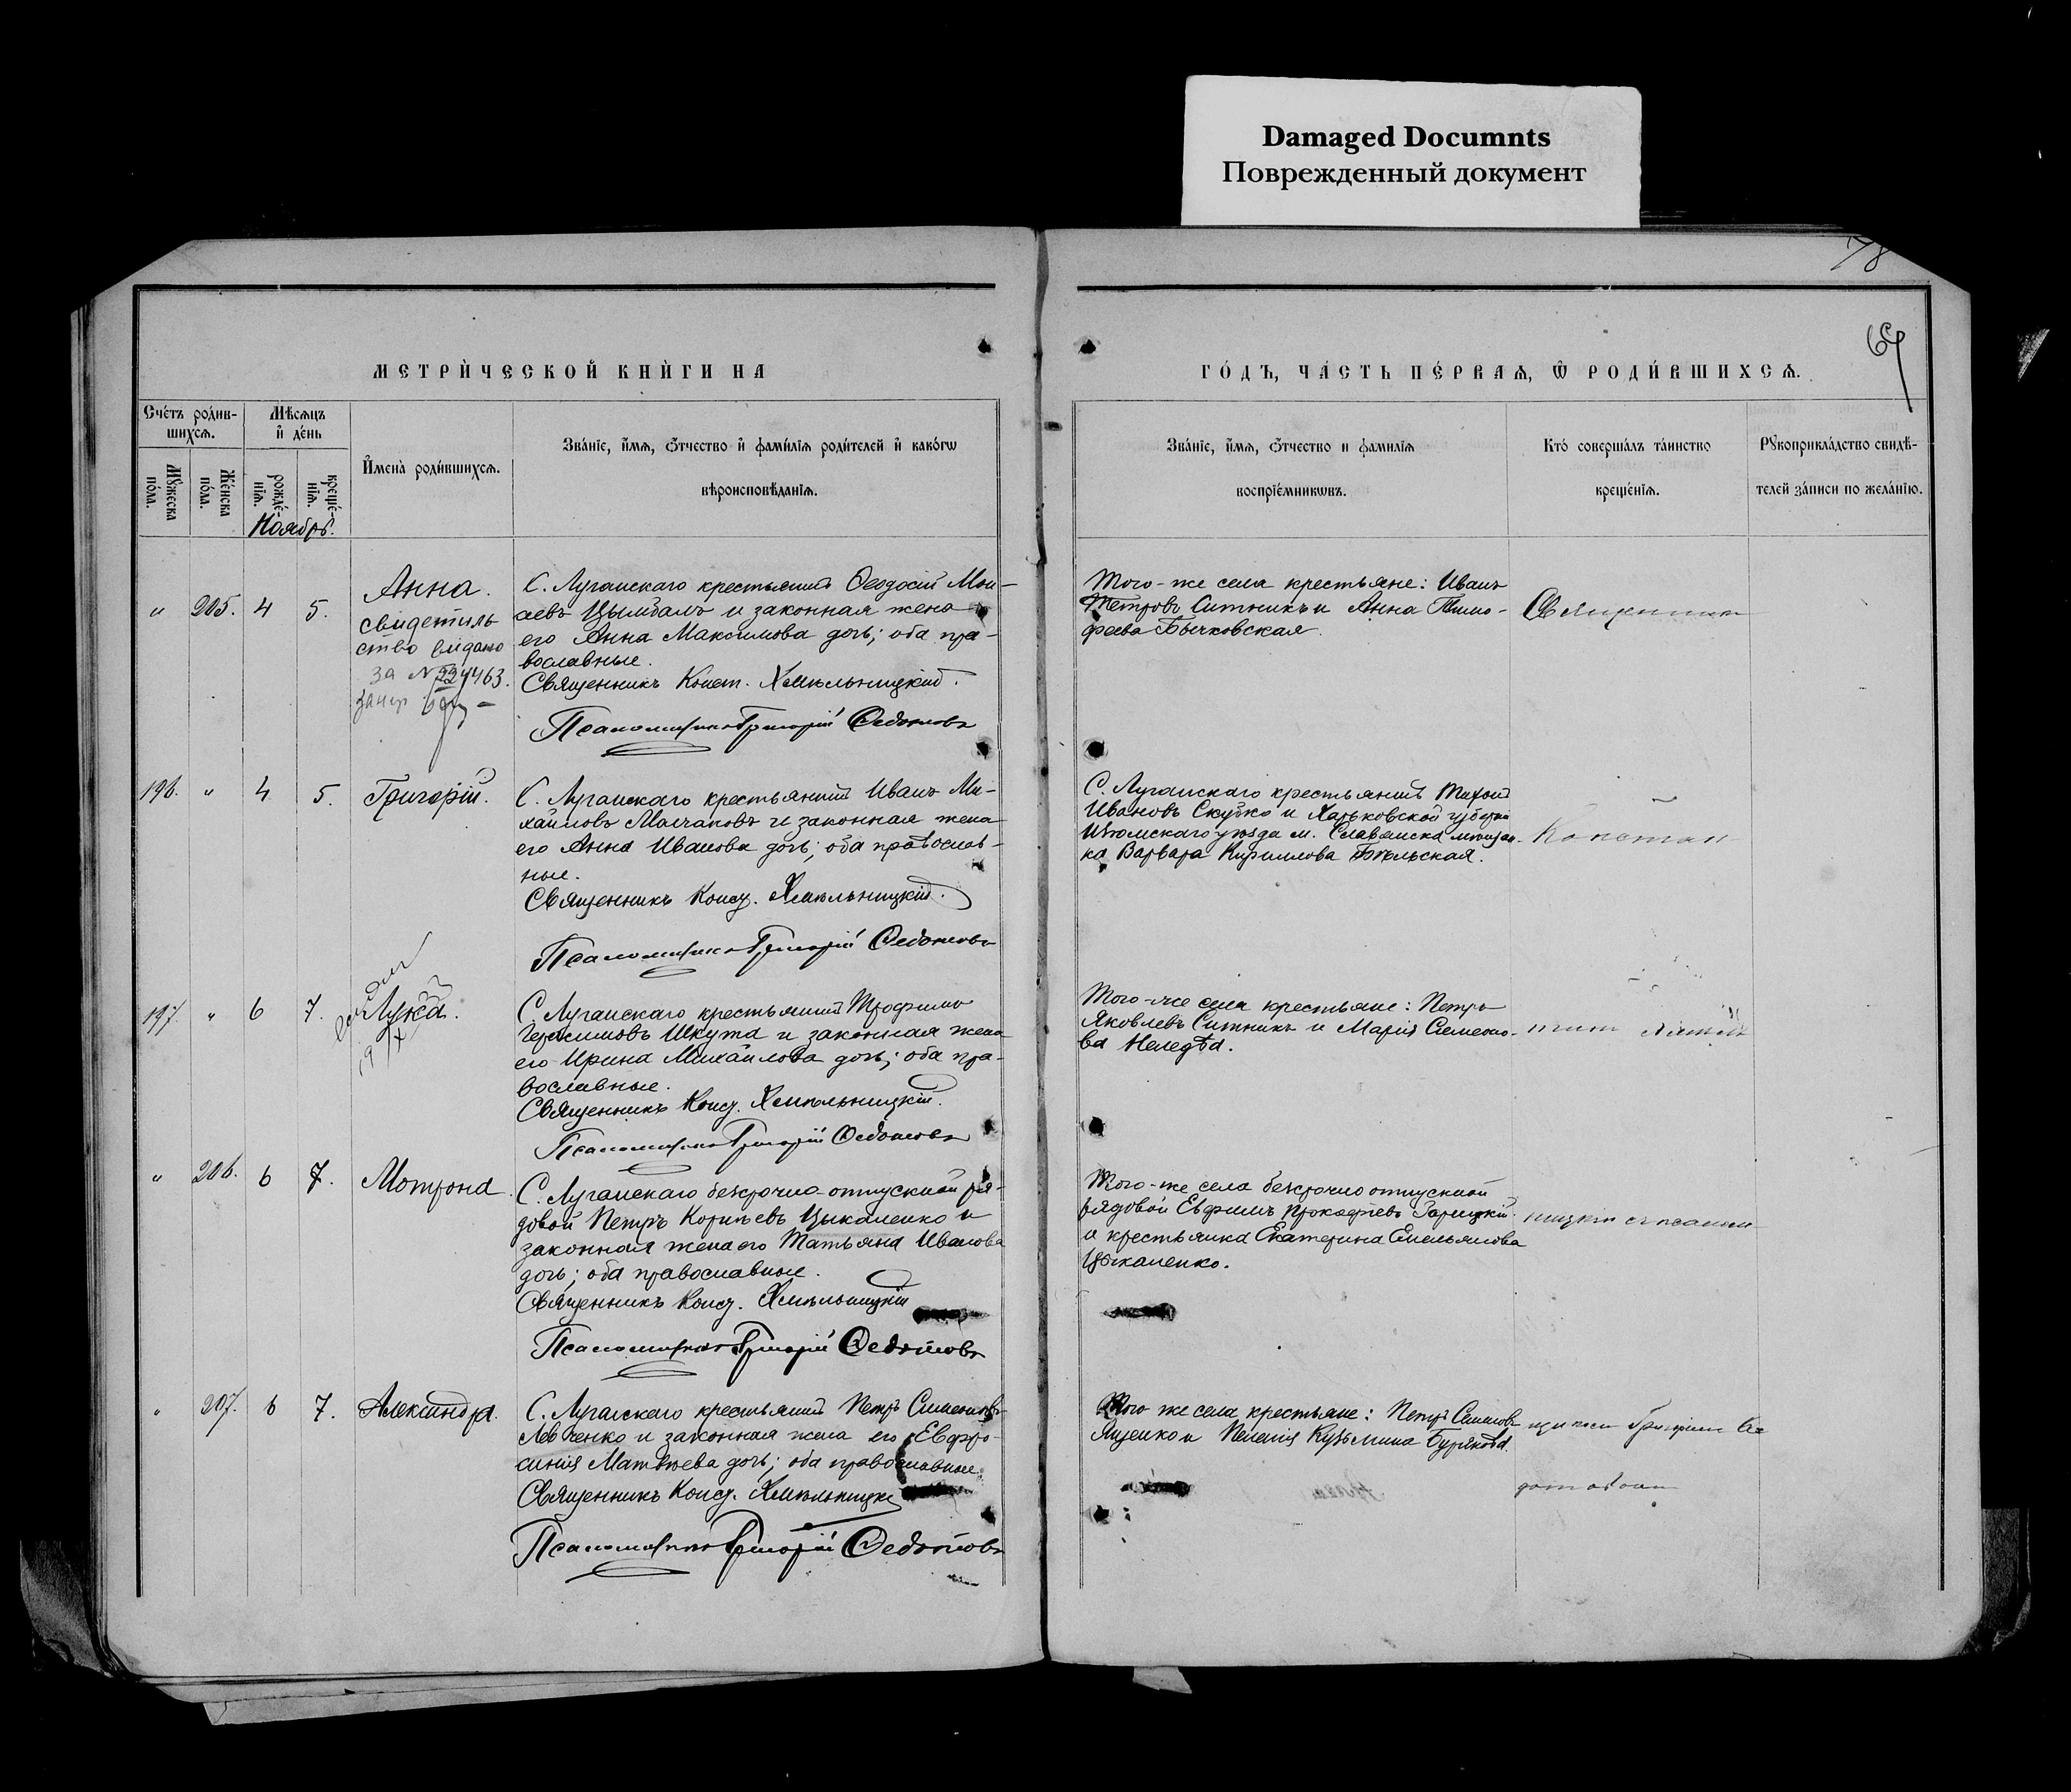 Damaged Documnts
Поврежденный документ
69
МЕТРИ́ЧЕСКОЙ КНИ́ГИ НА
ГО́ДЪ, ЧА́СТЬ ПЕ́РВАѦ, Ѿ РОДИ́ВШИХСѦ.
Сче́тъ роди́в-
шихсѧ.
Мѣ́сѧцъ
и̑ де́нь
И̑мена̀ роди́вшихсѧ.
Зва́нїе, и́мѧ, ѻ́тчество и̑ фами́лїѧ роди́телей и̑ како́гѡ
вѣроисповѣ́данїѧ.
Мꙋ́жеска
по́ла.
Же́нска
по́ла.
рожде́-
нїѧ.
креще́-
нїѧ.
Ноябрь.
Зва́нїе, и́мѧ, ѻ́тчество и фами́лїѧ
воспрїе́мникѡвъ.
Кто́ соверша́лъ та́инство
креще́нїѧ.
Рꙋкоприкла́дство свидѣ́-
телей за́писи по жела́нїю.
" 205. 4 5. Анна.
свидетель
ство видано
за №
С. Луганскаго крестьянинъ Ѳеодосій Мои-
сеевъ Цымбалъ и законная жена
его Анна Максимова дочь; оба пра-
вославные.
Священникъ Конст. Хмѣльницкій.
Псаломщикъ Григорій Ѳедотовъ
Того-же села крестьяне: Иванъ
Петровъ Ситникъ и Анна Тимо-
феева Бычковская.
Священник
196. " 4 5. Григорій.
С. Луганскаго крестьянинъ Иванъ Ми-
хайловъ Молчановъ и законная жена
его Анна Иванова дочь; оба православ-
ные.
Священникъ Конст. Хмѣльницкій.
Псаломщикъ Григорій Ѳедотовъ
С. Луганскаго крестьянинъ Тихон
Ивановъ Скубко и Харьковской губерніи
Изюмскаго уѣзда м. Славянска мѣщан-
ка Варвара Кириллова Бѣльская.
Констан
197. " 6 7. Лука.
С. Луганскаго крестьянинъ Трофимъ
Герасимовъ Шкута и законная жена
его Ирина Михайлова дочь; оба пра-
вославные.
Священникъ Конст. Хмѣльницкій.
Псаломщикъ Григорій Ѳедотовъ
Того-же села крестьяне: Петръ
Яковлевъ Ситникъ и Марія Симеоно-
ва Неледва.
" 206. 6 7. Мотрона.
С. Луганскаго безсрочно-отпускной ря-
довой Петръ Корнѣевъ Цыкаленко и
законная жена его Татьяна Иванова
дочь; оба православные.
Священникъ Конст. Хмѣльницкій
Псаломщикъ Григорій Ѳедотовъ
Того-же села безсрочно отпускной
рядовой Евфимъ Прокофіевъ Гарицкій
и крестьянка Екатерина Емельянова
Цыкаленко.
ницкій съ псалом
" 207. 6 7. Александра.
С. Луганскаго крестьянинъ Петръ Симеоновъ
Левченко и законная жена его Евфро-
синія Матвѣева дочь; оба православные.
Священникъ Конст. Хмѣльницкій
Псаломщикъ Григорій Ѳедотовъ
Того же села крестьяне: Петръ Семеновъ
Яценко и Пелагія Кузьмина Бурякова.
щикомъ Григоріем Ѳе
дотовым